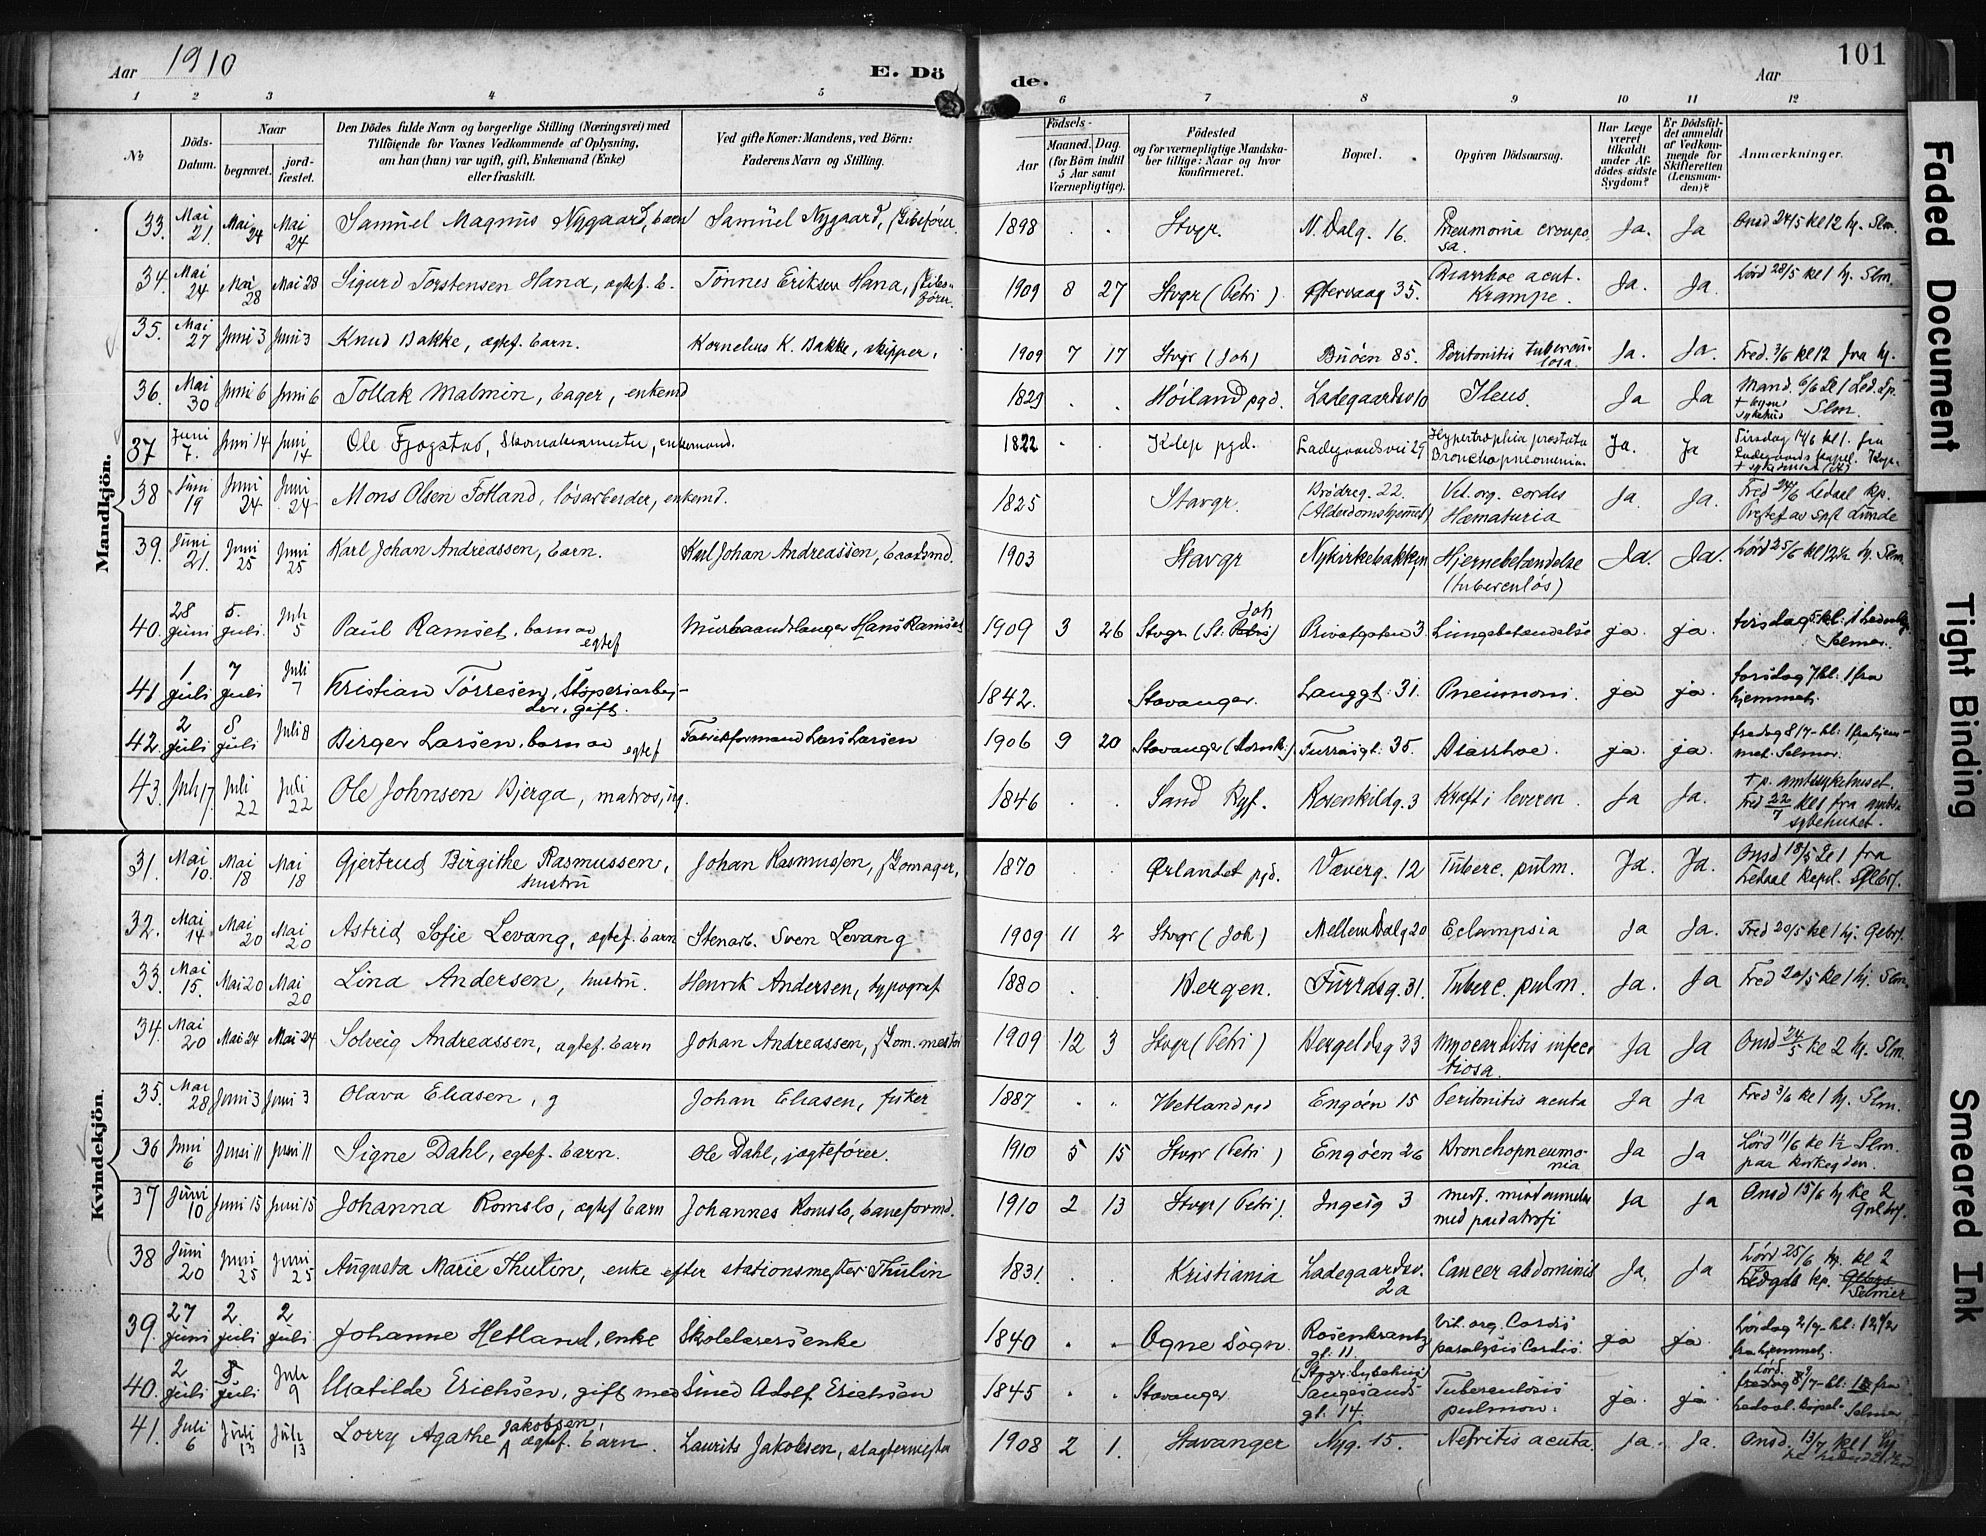 Aar 1910 E. Dö de. Aar 101
1 2 3 4 5 6 7 8 9 10 11 12
№ Döds-Datum. Naar begravet. jord-fæstet. Den Dödes fulde Navn og borgerlige Stilling (Næringsvei) med Tilföiende for Voxnes Vedkommende af Oplysning, om han (hun) var ugift, gift, Enkemand (Enke) eller fraskilt. Ved gifte Koner: Mandens, ved Börn: Faderens Navn og Stilling. Födsels- Aar Maaned. Dag. (for Börn indtil 5 Aar samt Værnepligtige). Födested og for værnepligtige Mandskaber tillige: Naar og hvor konfirmeret. Bopæl. Opgiven Dödsaarsag. Har Læge været tilkaldt under Afdödes sidste Sygdom? Er Dödsfaldet anmeldt af Vedkommende for Skifteretten (Lensmanden)? Anmærkninger.
Mandkjön.
33. Mai 21. Mai 24 Mai 24 Samuel Magnus Nygaard, barn Samuel Nygaard, 1898 . . Stvgr. N. Dalg. 16. Pneumonia crouposa. Ja. Ja Onsd 24/5 kl 12 hj. Slm.
34. Mai 24 Mai 28 Mai 28 Sigurd Torstensen Hana, egtef. b. Tönnes Eriksen Hana, 1909 8 27 Stvgr (Petri) Østervaag 35. Diarrhoe acut. Krampe. Ja. Ja. Lörd 28/5 kl 1 hj. Slm.
35. Mai 27 Juni 3 Juni 3 Knud Bakke, egtef. barn. Kornelius K. Bakke, skipper. 1909 7 17 Stvgr (Joh) Buöen 85. Peritonitis tuberculosa. Ja. Ja. Fred. 3/6 kl 12 fra hj.
36. Mai 30 Juni 6 Juni 6 Tollak Malmin, bager, enkemd 1829 . . Höiland pgd. Ladegaardsv 10 Ileus. Ja Ja Mand. 6/6 kl 1 Led. kp. + byens sykehus Slm.
37 Juni 7. Juni 14 Juni 14 Ole Fjogstad, Skomakermester, enkemand. 1822 . . Klep pgd. Ladegaardsvei 29 Hypertrophia prostata Bronchopneumonia. Ja. Ja Tirsdag 14/6 kl 1. fra Ladegaards kapel.
38 Juni 19 Juni 24 Juni 24 Mons Olsen Fotland, lösarbeider, enkemd. 1825 Stavgr. Brödreg. 22. (Alderdomshjemmet) Vit. org. cordis Hæmaturia Ja Ja. Fred 24/6 Ledaal kp. av Lunde
39. Juni 21. Juni 25 Juni 25 Karl Johan Andreassen, barn. Karl Johan Andreassen, 1903 Stavgr Nykirkebakken Hjernebetændelse (tuberculös) Ja. Ja. Lörd 25/6 kl 12 1/2 hj. Slm.
40. 28 Juni 5. Juli. Juli 5 Paul Ramset. barn av egtef Murhaandlanger Hans Ramset 1909 3 26 Stvgr (St. Petri) Joh Privatgaten 3. Lungebetændelse ja. ja. tirsdag 5. kl: 1 Selmer.
41 1 Juli 7 Juli Juli 7 Kristian Törresen, Stöperiarbejder, gift. 1842. Stavanger. Langgt: 31. Pneumoni. ja ja. torsdag 7 kl: 1 fra hjemmet.
42. 2 juli 8 juli Juli 8 Birger Larsen, barn av egtef Fabrikformand Lars Larsen 1906 9 20 Stavanger (Domk:) Furrasgt: 35. Diarrhoe. ja. ja. fredag 8/7- kl: 1 fra hjemmet. Selmer.
43. Juli 17. Juli 22 Juli 22 Ole Johnsen Bjerga, matros, ug. 1846 . . Sand Ryf. Rosenkildg. 3 Kræft i leveren. Ja Ja. + p. amtssykehuset fred 22/7 kl 1 fra amtssykehuset.
Kvindekjön.
31. Mai 10. Mai 18 Mai 18 Gjertrud Birgithe Rasmussen, hustru Johan Rasmussen, skomager, 1870 . . Ørlandet pgd. Væverg. 12 Tuberc. pulm. Ja. Ja. Onsd 18/5 kl 1 fra Ledaal Kapel.
32. Mai 14 Mai 20 Mai 20 Astrid Sofie Levang, egtef. barn Stenarb. Sven Levang 1909 11 2 Stvgr (Joh) Mellem Dalg 20 Eclampsia Ja Ja. Fred 20/5 kl 1 hj.
33. Mai 15. Mai 20 Mai 20 Lina Andersen, hustru. Henrik Andersen, typograf 1880 . . Bergen. Furrasg. 31. Tuberc. pulm. Ja. Ja Fred 20/5 kl 1 hj. Slm.
34. Mai 20 Mai 24 Mai 24 Solveig Andreassen, egtef. barn Johan Andreassen, skom.mester 1909 12 3 Stvgr (Petri) Bergeldsg 33 Myocarditis infectiosa. Ja Ja Onsd 24/5 kl 2 hj. Slm.
35. Mai 28 Juni 3 Juni 3 Olava Eliasen, g Johan Eliasen, fisker 1887 . . Hetland pgd Engöen 15 Peritonitis acuta Ja Ja Fred 3/6 kl 1 hj. Slm.
36 Juni 6 Juni 11 Juni 11 Signe Dahl, egtef. barn. Ole Dahl, jagtefører. 1910 5 15 Stvgr (Petri) Engöen 26 Bronchopneumonia Ja Ja Lörd 11/6 kl 1 1/2 Slm. paa kirkegden.
37 Juni 10 Juni 15 Juni 15 Johanna Romslo, egtef barn Johannes Romslo, baneformd. 1910 2 13 Stvgr (Petri). Ingeig 3 med pædatrofi Ja Ja Onsd 15/6 hj kl 2
38 Juni 20 Juni 25 Juni 25 Augusta Marie Thulin, enke efter stationsmester Thulin 1831. . . Kristiania Ladegaardsv. 2a Cancer abdominis Ja, Ja Lörd 25/6 hj. kl 2 kp. Selmer
39. 27 juni 2 juli 2 juli Johanne Hetland, enke Skolelærersenke 1840 . . Ogne Sogn. Rosenkrantz gt: 11. Vit. org. Cordis paralysis Cordis. ja ja. Lørdag 2/7- kl: 12 1/2 fra hjemmet.
40. 2 juli 8 juli Juli 9 Matilde Erichsen, gift med Smed Adolf Erichsen 1845 . . Stavanger. (Stvgr. Sykehus) Tangesands gt: 14. Tuberculosis pulmon: ja. ja. fredag 8/7- Lörd. 9 kl: 1 fra Ledaal. kapel- Selmer.
41. Juli 6 Juli 13 Juli 13 Lorry Agathe Jakobsen, egtef. barn. Laurits Jakobsen, slagtermester 1908 2 1. Stavanger Nyg. 15. Nefritis acuta. Ja. Ja. Onsd. 13/7 kl 1 hj
Faded Document
Tight Binding
Smeared Ink